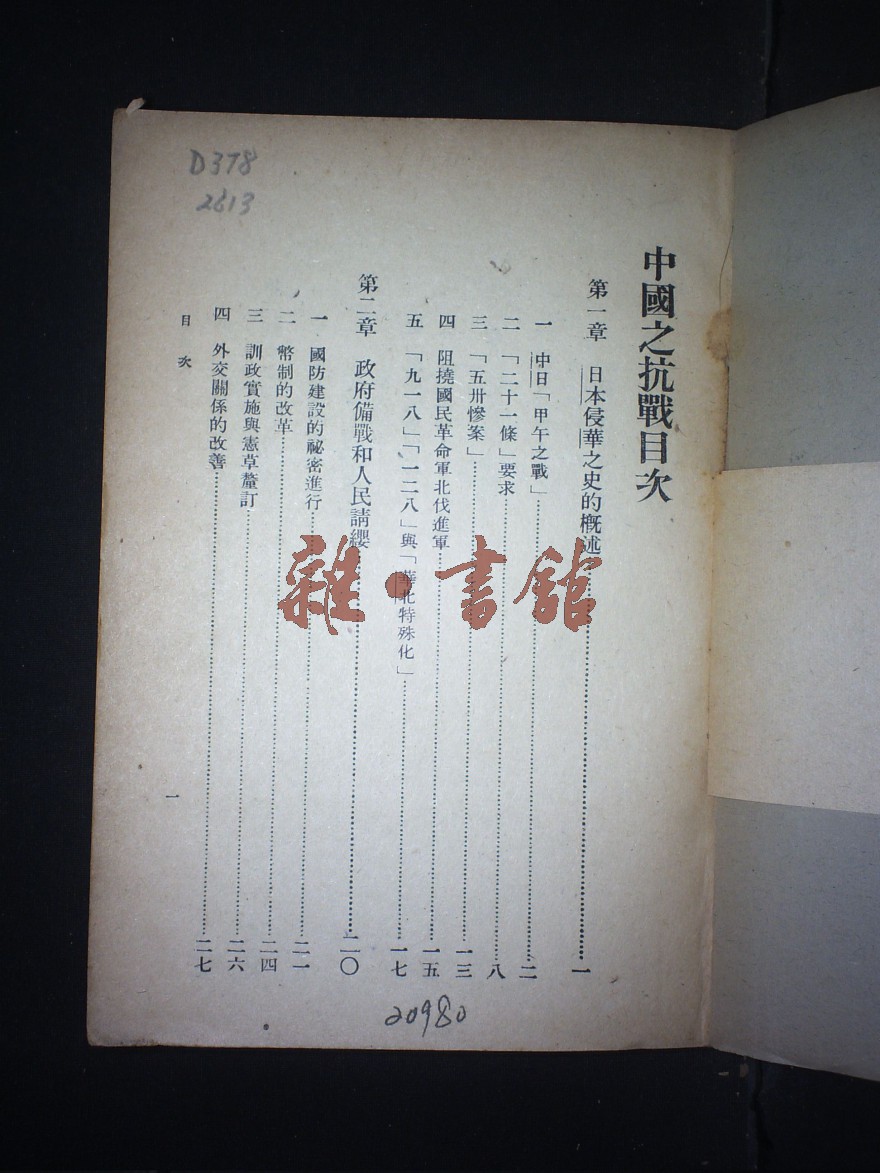 中國之抗戰目次
第一章　日本侵華之史的概述……一
一　中日「甲午之戰」……二
二　「二十一條」要求……八
三　「五卅慘案」……一三
四　阻撓國民革命軍北伐進軍……一五
五　「九一八」「一二八」與「華北特殊化」……一七
第二章　政府備戰和人民請纓……二〇
一　國防建設的祕密進行……二一
二　幣制的改革……二四
三　訓政實施與憲草釐訂……二六
四　外交關係的改善……二七
目次
一
D378
2613
20980
雜·書館